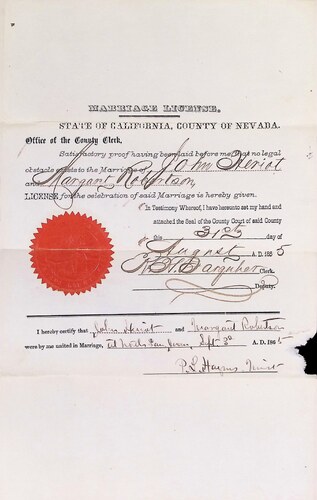 MARRIAGE LICENSE.
STATE OF CALIFORNIA, COUNTY OF NEVADA.
Office of the County Clerk,
Satisfactory proof having been laid before me that no legal
obstacle exists to the Marriage of John Heriot
and Margaret Robertson,
LICENSE for the celebration of said Marriage is hereby given.
In Testimony Whereof, I have hereunto set my hand and
attached the Seal of the County Court of said County
this 31st day of
August A. D. 1865
Farquhar Clerk.
Deputy.
I hereby certify that John Heriot and Margaret Robertson
were by me united in Marriage, at Sept 3d A. D. 1865
P. L. Haynes,